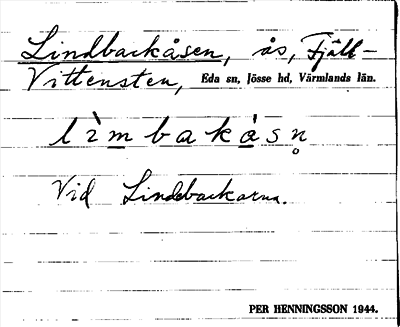 Lindbackåsen, ås, Fjäll-
Vittensten, Eda sn, Jösse hd, Värmlands län.
lìmbakàsn̥
Vid Lindebackarna.
PER HENNINGSSON 1944.